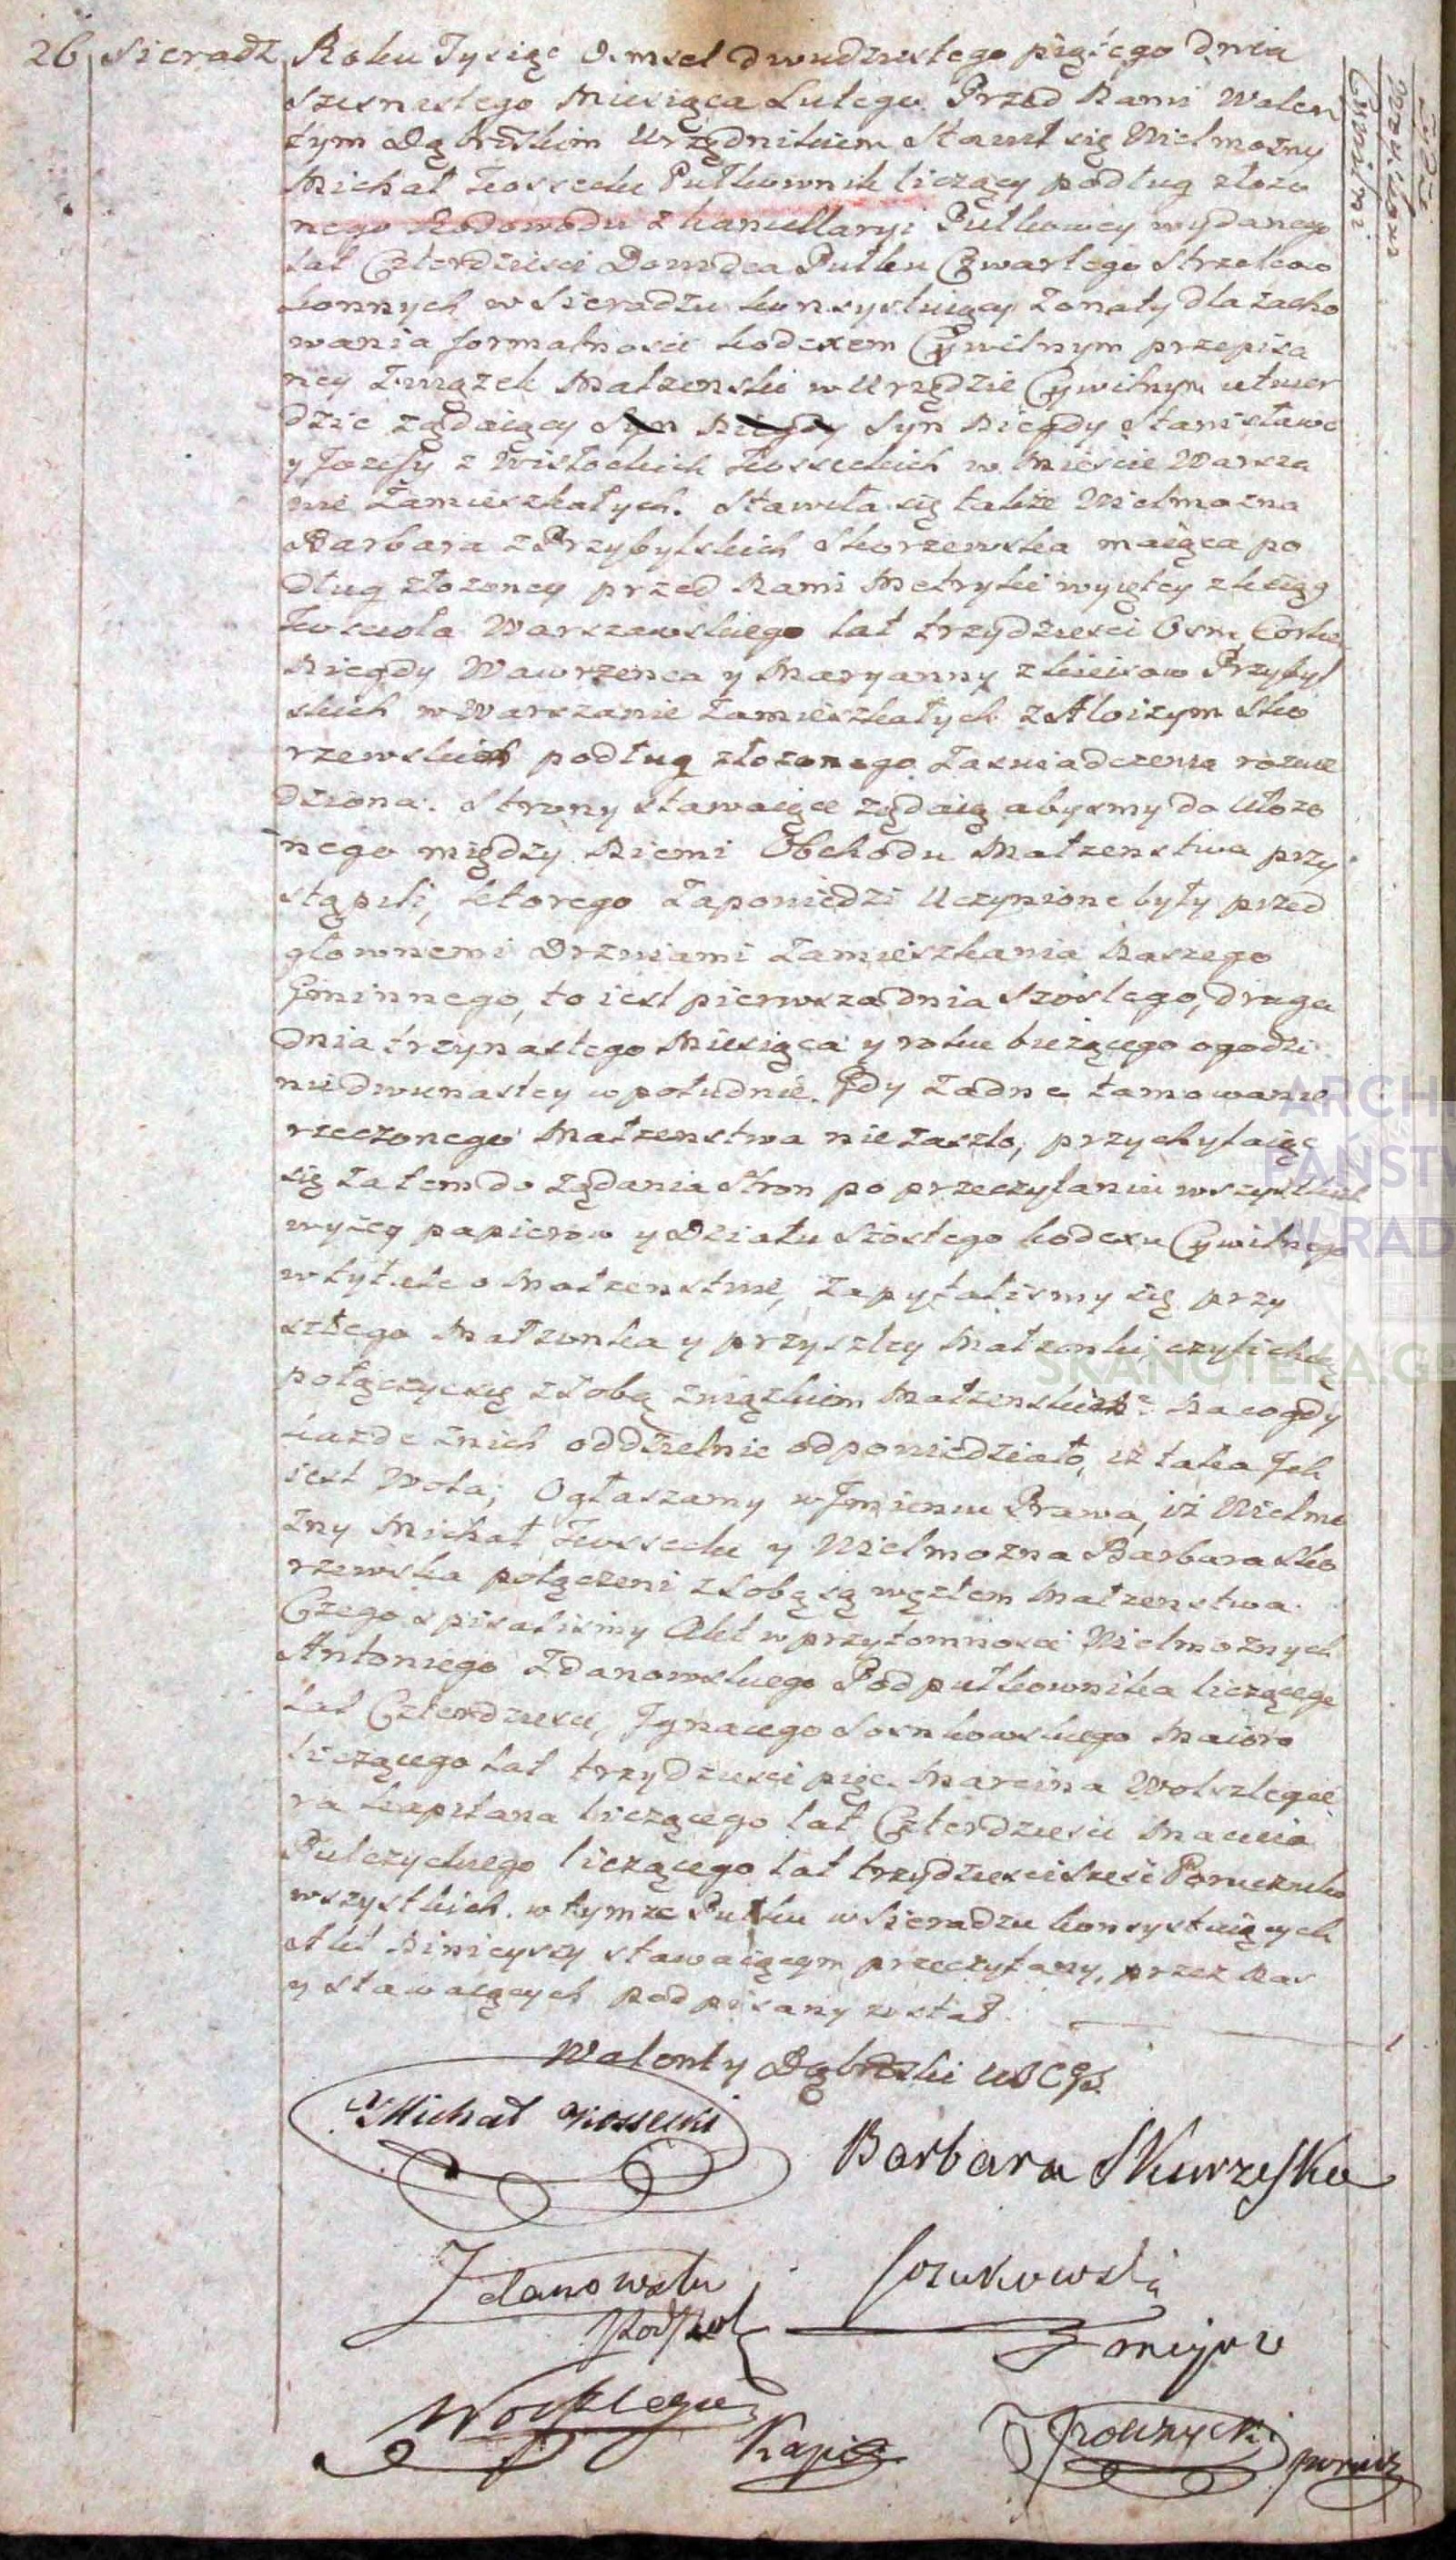 26 Sieradz Roku Tysiąc Osmset dwudziestego piątego dnia
szesnastego Miesiąca Lutego. Przed Nami Walen
tym Dąbrskim Urzędnikiem Stawił się Wielmożny
Michał Kossecki Pułkownik liczący podług złożo
nego Rodowodu z kancellaryi Pułkowey wydanego
lat Czterdzieści Dowodca Pułku Czwartego Strzelcow
konnych w Sieradzu konsystuiący żonaty dla zacho
wania formalnosci kodexem Cywilnym przepisa
ney Związek Małzenski w Urzędzie Cywilnym utwier
dzic ządaiący Syn Niegdy Syn Niegdy Stanisława
y Jozefy z Wisłockich Kosseckich w Mieście Warsza
wie Zamieszkałych. Stawiła się także Wielmozna
Barbara z Przybylskich Skorzewska maiąca po
dług złożoney przed Nami Metryki wyiętey z ksiąg
Kosciola Warszawskiego lat trzydzieści Osm, Corka
Niegdy Wawrzenca y Maryanny z Przybyl
skich w Warszawie Zamieszkałych z Aloizym Sko
rzewskim podług złozonego Zaswiadczenia rozwie
dziona. Strony stawaiące ządaią abysmy do ułozo
nego między Niemi Obchodu Małzenstwa przy
stąpili, ktorego Zapowiedzi Uczynione były przed
głownemi Drzwiami Zamieszkania Naszego
Gminnego, to iest pierwsza dnia szostego, druga
dnia trzynastego Miesiąca y roku bieżącego o godzi
nie dwunastey w południe. Gdy Zadne tamowanie
rzeczonego Małzenstwa nie Zaszło, przychylaiąc
się Zatem do Ządania Stron po przeczytaniu wszystkich
wyżey papierow y Działu szóstego kodexu Cywilnego
w tytule o Małzenstwie, Zapytalismy się przy
szłego Małzonka y przyszłey Małzonki, czyli chcą
połączyc się z sobą związkiem Małzenskim? Na co gdy
kazde z nich oddzielnie odpowiedziało, iz taka Jch
iest Wola; Ogłaszamy w Jmieniu Prawa, iż Wielmo
zny Michał Kossecki y Wielmozna Barbara Sko
rzewska połączeni z sobą są węzłem Małzenstwa.
Czego spisalismy Akt w przytomnosci Wielmożnych
Antoniego Zdanowskiego Podpułkownika liczącego
lat Czterdziesci, Jgnacego Sosnkowskiego Maiora
liczącego lat trzydziesci pięc. Marcina Wolszlegie
ra kapitana liczącego lat Czterdziesci Macieia
Pulczyckiego liczącego lat trzydziesci szesc Porucznika
wszystkich w tymze Pułku w Sieradzu konsystuiących
Akt Ninieyszy stawaiącym przeczytany, przez Nas
y stawaiących podpisany został.
Walenty Dąbrski
Michał Kossecki
Barbara Skurzeska
Zdanowski
podpoł
Sosnkowski
major
Wolszlegier
Kapit
porucz